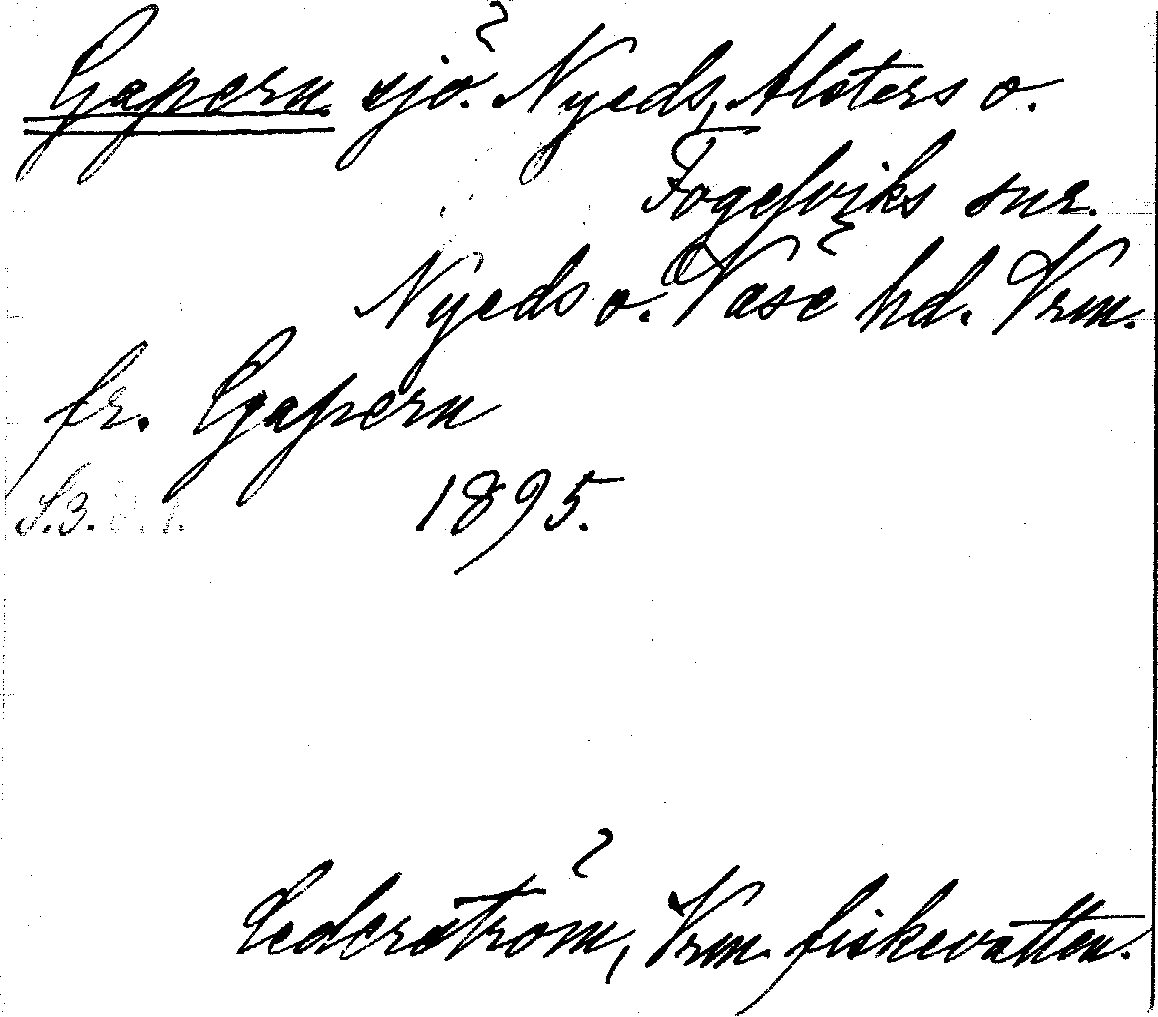 Gapern sjö. Nyeds, Alsters o.
Fogelviks snr.
Nyeds o. Väse hd. Vrm.
fr. Gapern
1895.
Cederström, Vrm. fiskevatten.